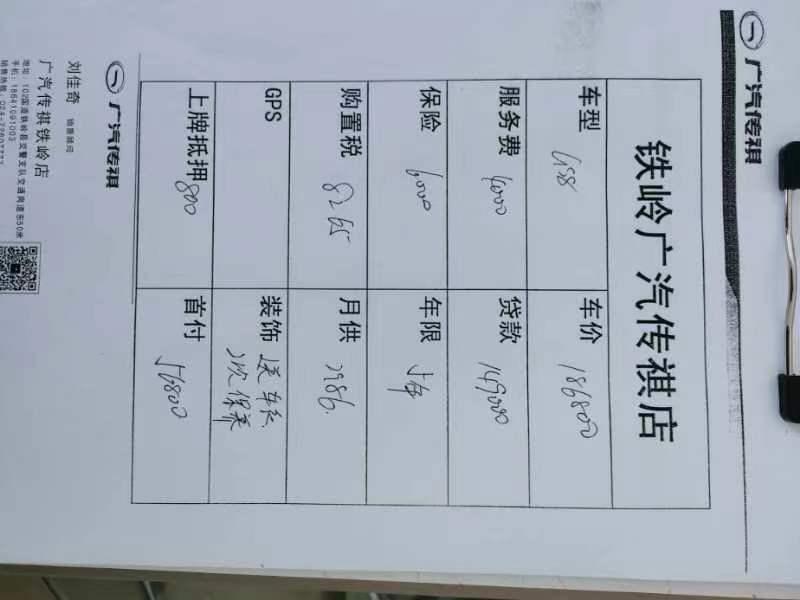 广汽传祺
铁岭广汽传祺店
车型 GS8
车价 186800
服务费 6000
贷款 149000
保险 6000
年限 5年
购置税 8265
月供 2986.
GPS
装饰 送车衣
2次保养
上牌抵押 800
首付 56800
广汽传祺
刘佳奇 销售顾问
广汽传祺铁岭店